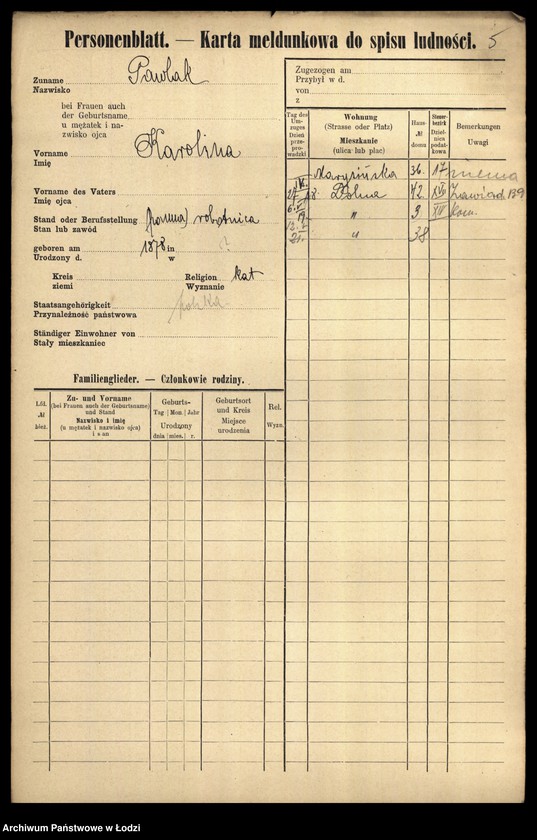 Personenblatt. — Karta meldunkowa do spisu ludności. 5
Zuname Pawlak
Nazwisko
bei Frauen auch
der Geburtsname,
u mężatek i na-
zwisko ojca
Vorname Karolina
Imię
Vorname des Vaters
Imię ojca
Stand oder Berufsstellung (panna) robotnica
Stan lub zawód
geboren am 1878 in ?
Urodzony d. w
Kreis Religion kat
ziemi Wyznanie
Staatsangehörigkeit polska
Przynależność państwowa
Ständiger Einwohner von
Stały mieszkaniec
Zugezogen am
Przybył w d.
von
z
Tag des Um-zuges Dzień prze-pro-wadzki
Wohnung
(Strasse oder Platz)
Mieszkanie
(ulica lub plac)
Haus-
№
domu
Steuer-bezirk Dziel-nica podat-kowa
Bemerkungen
Uwagi
Marysińska 36. 17
Dolna 42 XVI Zawiad. 139
" 9 XVI Kom.
" 38
Familienglieder. — Członkowie rodziny.
Lfd.
№
bież.
Zu- und Vorname
(bei Frauen auch der Geburtsname)
und Stand
Nazwisko i imię
(u mężatek i nazwisko ojca)
i stan
Geburts-
Tag Mon. Jahr
Urodzony
dnia mies. r.
Geburtsort
und Kreis
Miejsce
urodzenia
Rel.
Wyzn.
Archiwum Państwowe w Łodzi